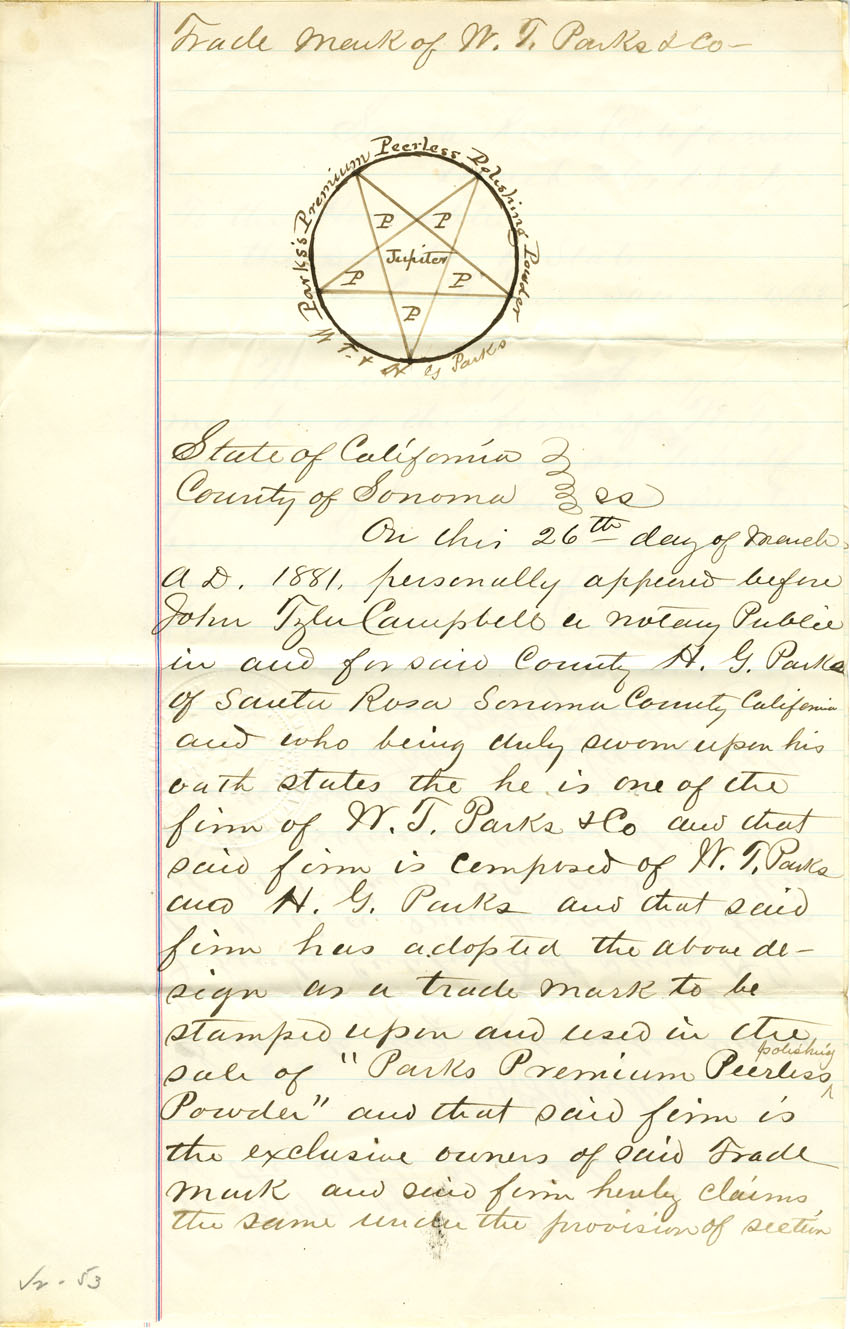 Trade Mark of W. T. Parks & Co—
Parks's Premium Peerless Polishing Powder
P P
Jupiter
P P
P
W T. & H G Parks
State of California
County of Sonoma ss
On this 26th day of March
A D. 1881. personally appeared before
John Tyler Campbell a Notary Public
in and for said County H. G. Parks
of Santa Rosa Sonoma County California
and who being duly sworn upon his
oath states the he is one of the
firm of W. T. Parks & Co and that
said firm is composed of W. T. Parks
and H. G. Parks and that said
firm has adopted the above de-
sign as a trade mark to be
stamped upon and used in the
polishing
sale of "Parks Premium Peerless ^
Powder" and that said firm is
the exclusive owners of said Trade
Mark and said firm hereby claims
the same under the provision of section
53